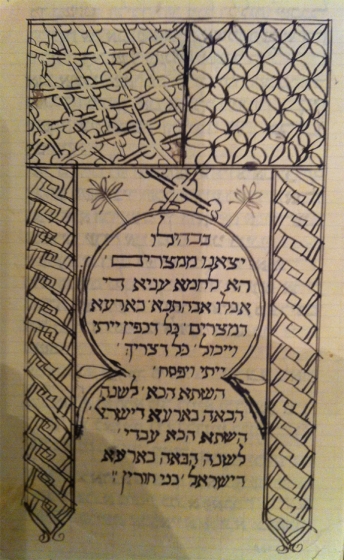 בבהילו
יצאנו ממצרים
הא לחמא עניא די
אכלו אבהתנא בארעא
דמצרים כל דכפין ייתי
וייכול כל דצריך
ייתי ויפסח
השתא הכא לשנה
הבאה בארעא דישרא'
השתא הכא עבדי
לשנה הבאה בארעא
דישראל בני חורין